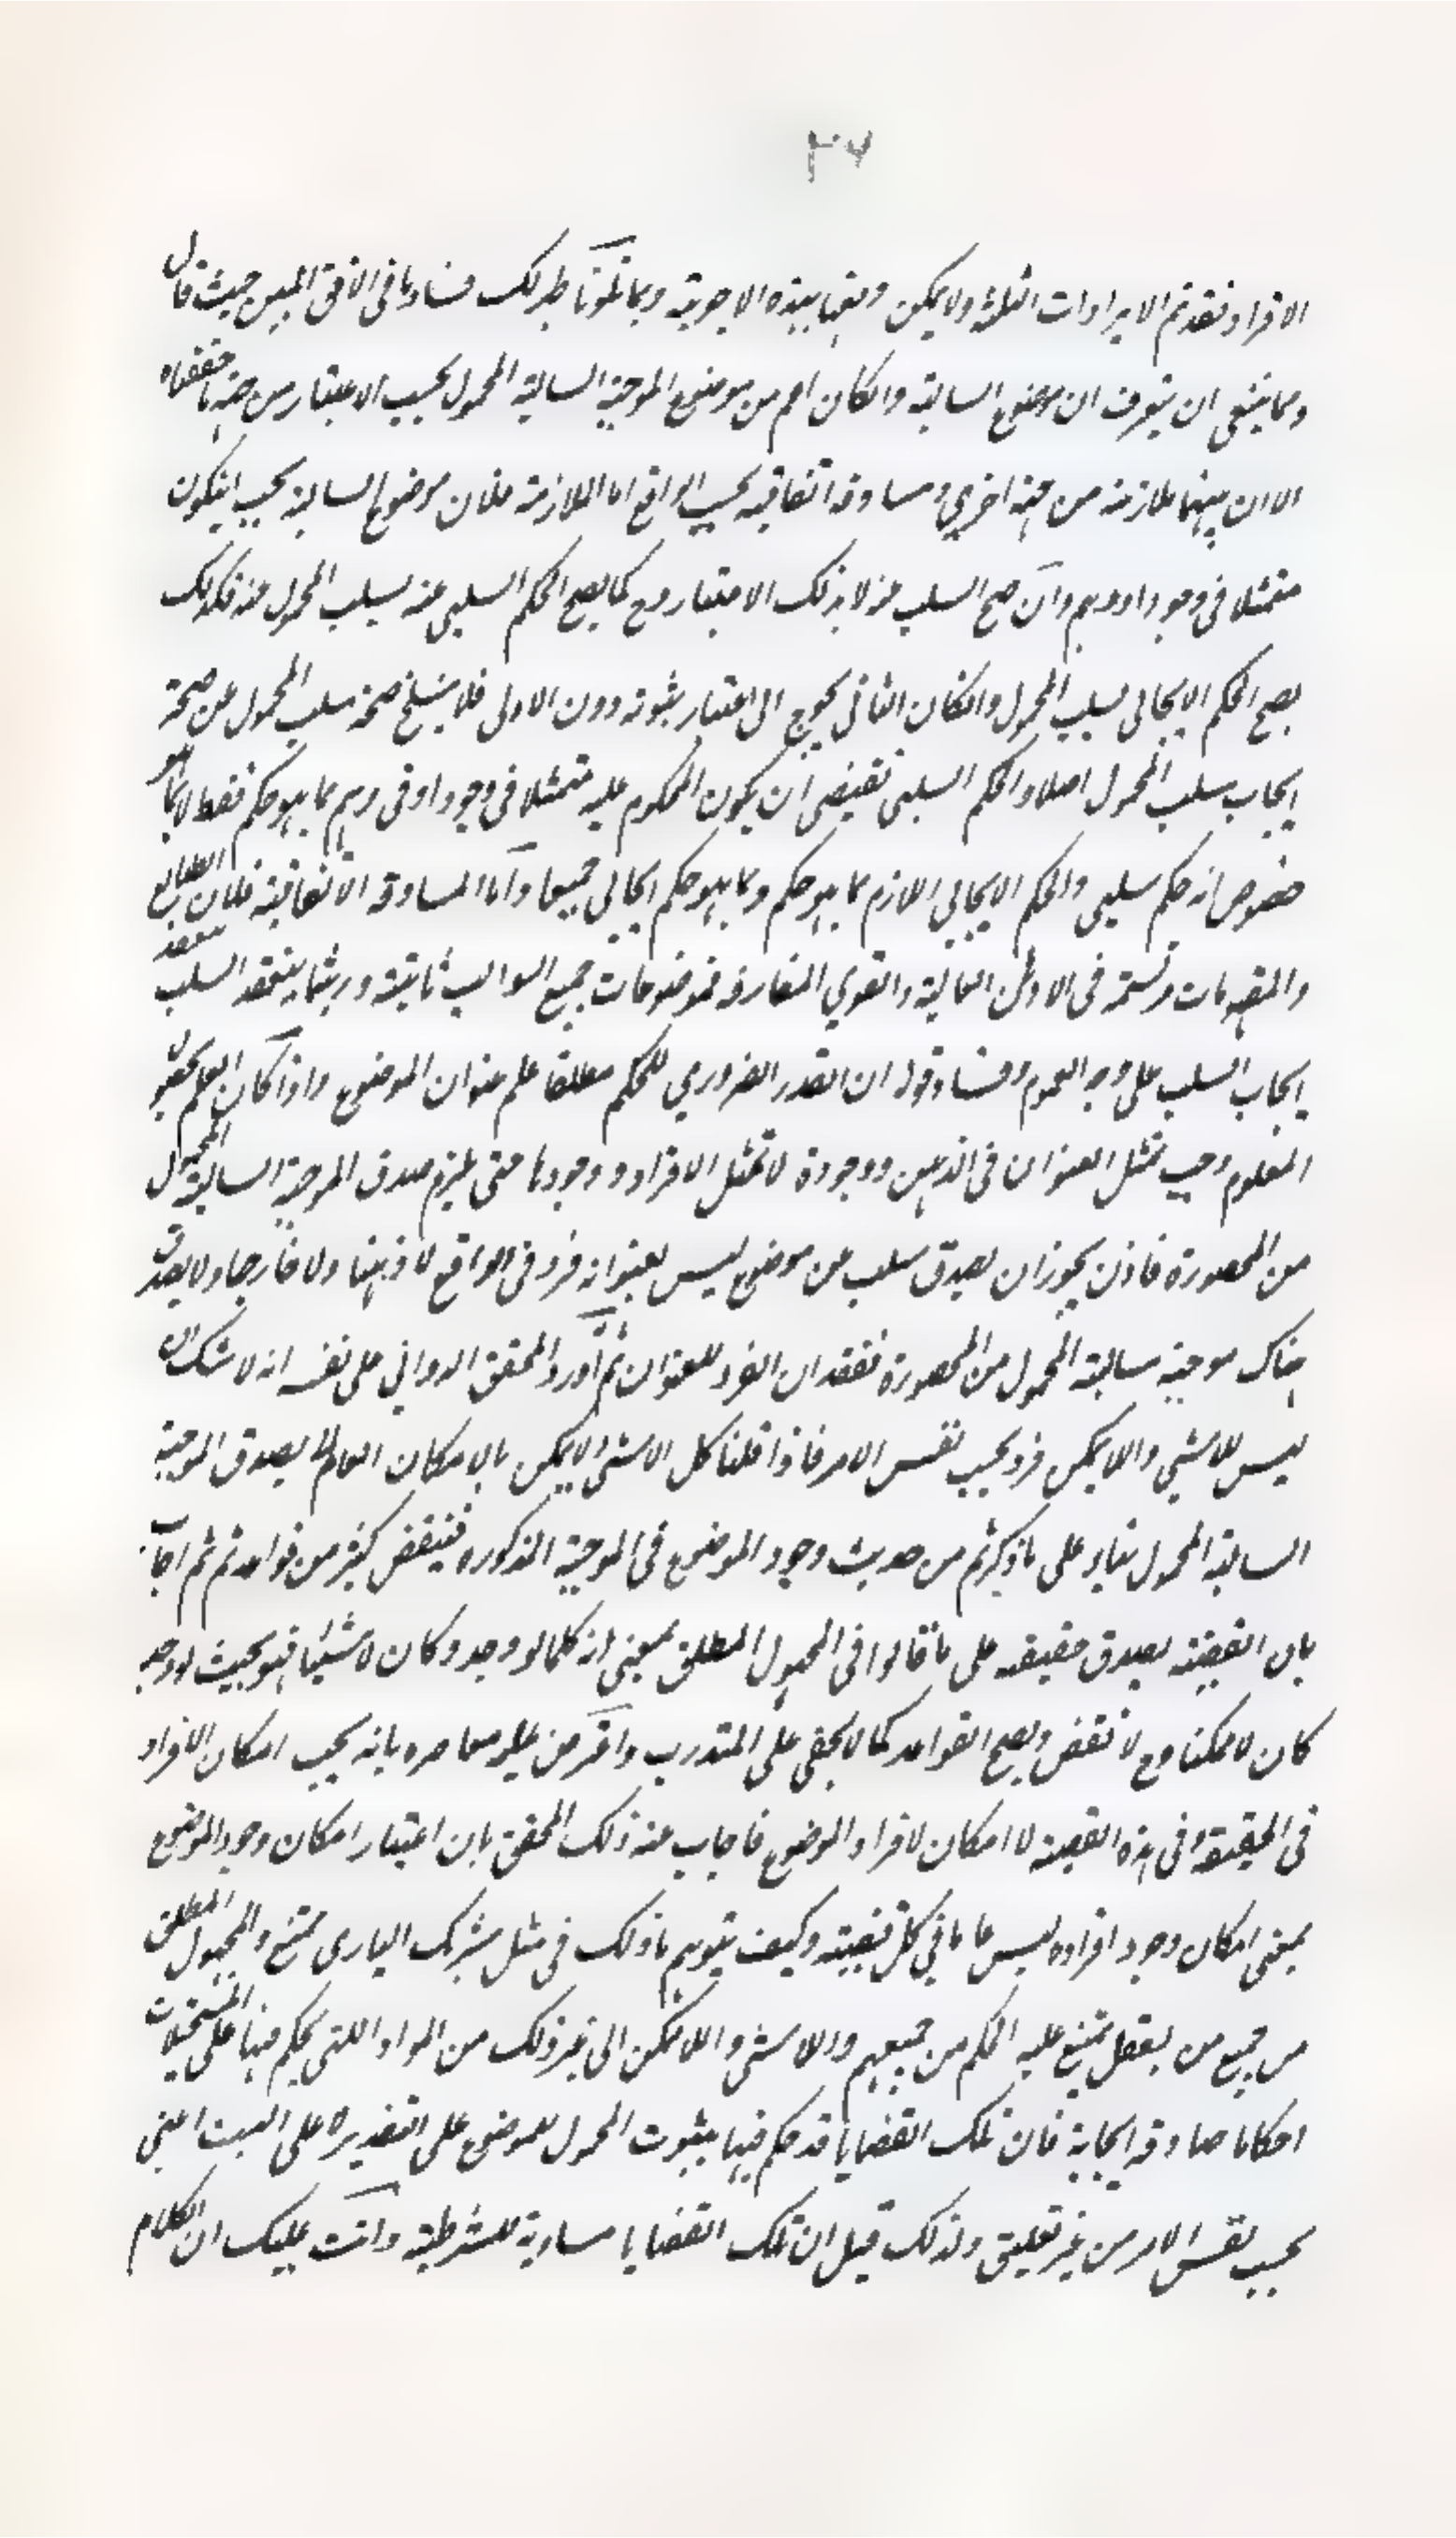 ٢٧
الافراد فقد تم الايرادات الثلثة ولا يمكن دفعها بهذه الاجوبة وبما تلونا ظهر لك فساد ما فى الافق المبين حيث قال
ومما ينبغى ان يعرف ان موضوع السالبة وانكان اعم من موضوع الموجبة السالبة المحمول بحسب الاعتبار من جهة ما حققناه
الا ان بينهما ملازمة من جهة اخرى ومساوقة اتفاقية بحسب الواقع اما الملازمة فلان موضوع السالبة يجب ان يكون
متمثلا فى وجود او وهم وان صح السلب عنه لا بذلك الاعتبار وح كما يصح الحكم السلبى عنه بسلب المحمول عنه فكذلك
يصح الحكم الايجابى بسلب المحمول وانكان الثانى يحوج الى اعتبار ثبوته دون الاولى فلا ينسلخ صحة سلب المحمول عن صحة
ايجاب سلب المحمول اصلا والحكم السلبى تقتضى ان يكون المحكوم عليه متمثلا فى وجود او فى وهم بما هو حكم فقط لا بما هو
خصوص انه حكم سلبى والحكم الايجابى اللازم بما هو حكم وبما هو حكم ايجابى جميعا واما المساوقة الاتفاقية فلان الطبائع
والمفهومات مرتسمة فى الاذهان العالية والقوى المفارقة فموضوعات جميع السوالب ثابتة وريثما ينعقد السلب ينعقد
ايجاب السلب على وجه العموم وفساد قوله ان القدر الضرورى للحكم مطلقا علم عنوان الموضوع واذا كان العلم بحصول
المعلوم وجب تمثل العنوان فى الذهن ووجوده لا تمثل الافراد ووجودها حتى يلزم صدق الموجبة السالبة المحمول
من المحصورة فاذن يجوز ان يصدق سلب عن موضوع ليس لعنوانه فرد فى الواقع لا ذهنا ولا خارجا ولا يصدق
هناك موجبة سالبة المحمول من المحصورة لفقدان الفرد للعنوان ثم اورد المحقق الدوانى على نفسه انه لا شك انه
ليس للاشئ واللاممكن فرد بحسب نفس الامر فاذا قلنا كل لا شئ لا ممكن بالامكان العام لا يصدق الموجبة
السالبة المحمول بناء على ما ذكرتم من حديث وجود الموضوع فى الموجبة المذكوره فينتقض كثير من قواعدتم ثم اجاب
بان القضية يصدق حقيقة على ما قالوا فى المجهول المطلق بمعنى انه كلما لو وجد وكان لا شيئا فهو بحيث لو وجد
كان لا ممكنا وح لا نقض ويصح القواعد كما لا يخفى على المتدرب واعترض عليه معاصره بانه يجب امكان الافراد
فى الحقيقة وفى هذه القضية لا امكان لافراد الموضوع فاجاب عنه ذلك المحقق بان اعتبار امكان وجود الموضوع
بمعنى امكان وجود افراده ليس عاما فى كل قضية وكيف يتوهم ذلك فى مثل شريك البارى ممتنع والمجهول المطلق
من جميع من يعقل يمتنع عليه الحكم من جميعهم واللاشئ واللاممكن الى غير ذلك من المواد اللتى يحكم فيها على المستحيلات
احكاما صادقة ايجابية فان تلك القضايا قد حكم فيها بثبوت المحمول للموضوع على التقدير لا على البت اعنى
بحسب نفس الامر من غير تعليق ولذلك قيل ان تلك القضايا مساوية للشرطية وانت عليك ان الكلام